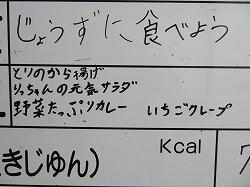 じょうずに食べよう
とりのから揚げ
りっちゃんの元気サラダ
野菜たっぷりカレー　いちごクレープ
Kcal
きじゅん)